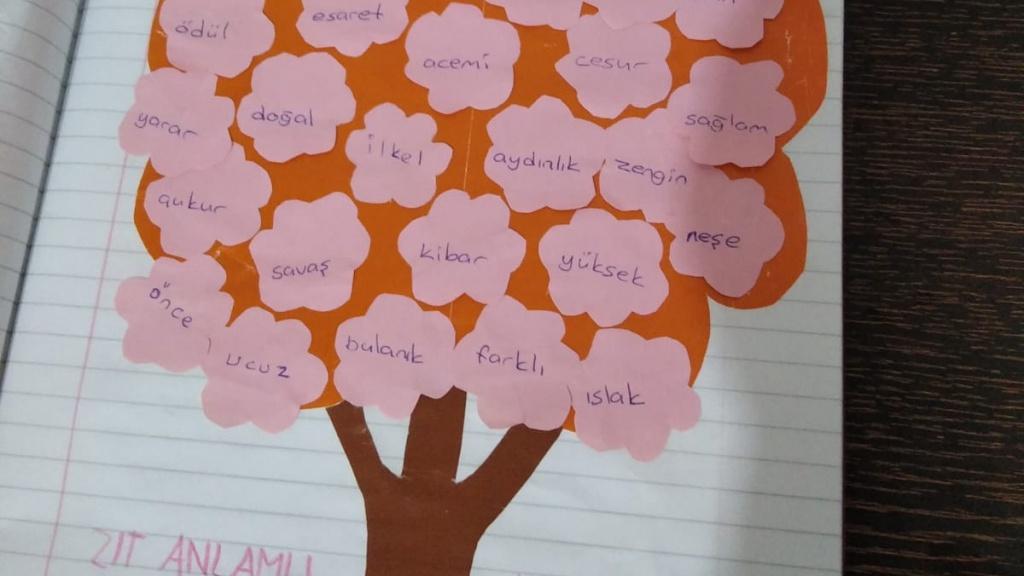 ödül
esaret
acemi
cesur
yarar
doğal
ilkel
aydınlık
zengin
sağlam
çukur
savaş
kibar
yüksek
neşe
önce
ucuz
bulanık
farklı
ıslak
ZIT ANLAMLI